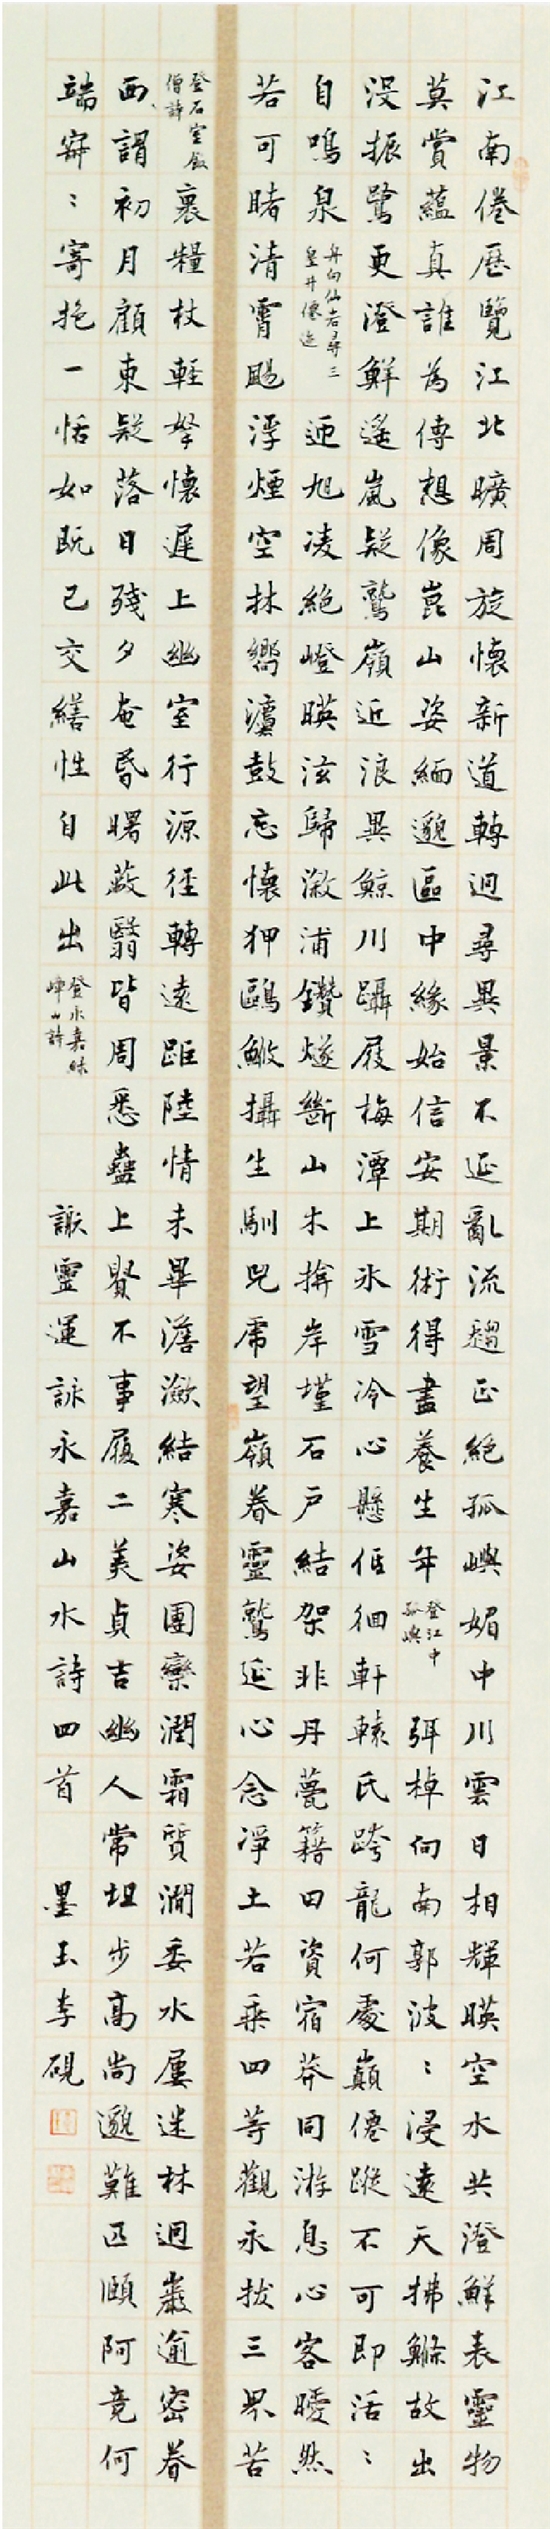 江南倦歷覽江北曠周旋懷新道轉迥尋異景不延亂流趨正絕孤嶼媚中川雲日相輝暎空水共澄鮮表靈物
莫賞蘊真誰為傳想像崑山姿緬邈區中緣始信安期術得盡養生年登江中孤嶼 弭棹向南郭波〻浸遠天拂鯈故出
沒振鷺更澄鮮遙嵐疑鷲嶺近浪異鯨川躡屐梅潭上冰雪冷心懸低徊軒轅氏跨龍何處巔僊蹤不可即活〻
自鳴泉舟向仙岩尋三皇井僊迹 迎旭凌絕嶝暎泫歸漵浦鑽燧斷山木揜岸墐石戶結架非丹甍籍田資宿莽同游息心客曖然
若可睹清霄颺浮煙空林嚮灋鼓忘懷狎鷗鮍攝生馴兕虎望嶺眷靈鷲延心念淨土若乘四等觀永拔三界苦
登石室飯僧詩 裹糧杖輕策懷遲上幽室行源徑轉遠距陸情未畢澹瀲結寒姿團欒潤霜質澗委水屢迷林迥巖逾密眷
西謂初月顧東疑落日殘夕奄昏曙蔽翳皆周悉蠱上賢不事履二美貞吉幽人常坦步高尚邈難匹頤阿竟何
端寂〻寄抱一恬如既已交繕性自此出登永嘉綠嶂山詩 謝靈運詠永嘉山水詩四首 墨玉李硯